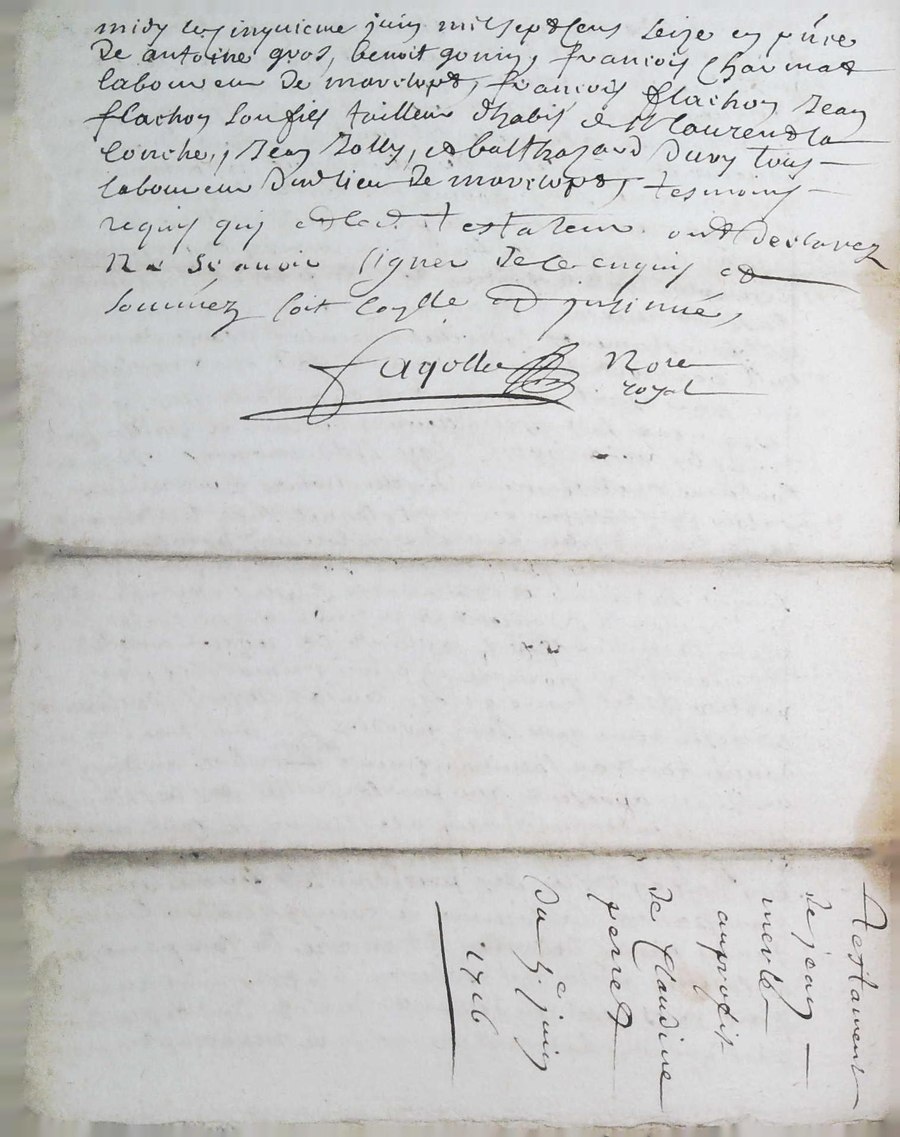 midy le sinquieme juin mil sept cens seize en pnce
de antoine gros, benoit gonin, francois Charmat
laboureur de
francois flachon Jean
flachon son fils tailleur dhabis et laurend la
Conche, Jean Jolly, et balthazard duvy tous
laboureur dud lieu de
tesmoins
requis qui et led testateur ont declarez
Ne scavoir signer de ce enquis et
sommez soit Coylle et jnsinué,
fayolle Nore
royal
Testament
de jean
merle
auproffit
de Claudine
perret
du 5e juin
1716